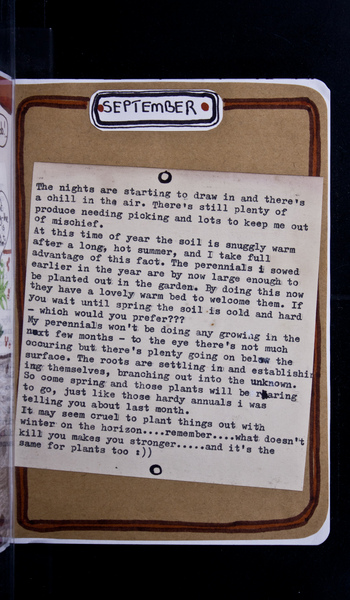 SEPTEMBER
The nights are starting to draw in and there's
a chill in the air. There's still plenty of
produce needing picking and lots to keep me out
of mischief.
At this time of year the soil is snuggly warm
after a long, hot summer, and I take full
advantage of this fact. The perennials i sowed
earlier in the year are by now large enough to
be planted out in the garden. By doing this now
they have a lovely warm bed to welcome them. If
you wait until spring the soil is cold and hard
- which would you prefer???
My perennials won't be doing any growing in the
next few months - to the eye there's not much
occuring but there's plenty going on below the
surface. The roots are settling in and establish
ing themselves, branching out into the unknown.
So come spring and those plants will be raring
to go, just like those hardy annuals i was
telling you about last month.
It may seem cruel to plant things out with
winter on the horizon....remember....what doesn't
kill you makes you stronger.....and it's the
same for plants too :))